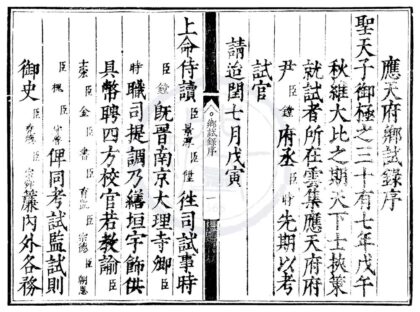 應天府鄉試錄序
聖天子御極之三十有七年戊午
秋維大比之期天下士挾策
就試者所在雲集應天府府
尹臣鑨府丞臣時先期以考
試官
請迨閏七月戊寅
鄉試錄序
上命侍讀臣景淳臣往司試事時
臣鑨既晉南京大理寺卿臣
時職司提調乃繕垣宇飾供
具幣聘四方校官若教諭臣
臣金臣書臣有臣宗德臣朝
臣俾同考試監試則
御史臣臣宗簾內外各務